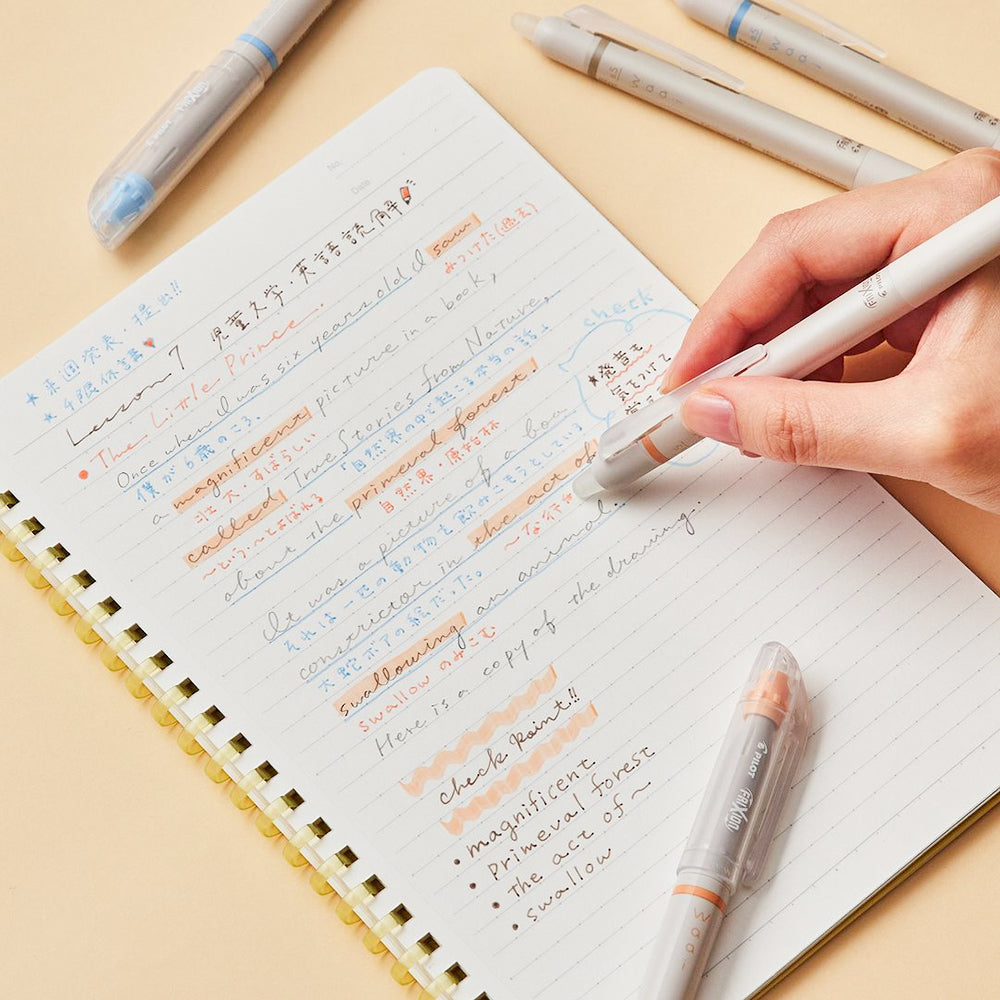 No.
Date
★ 来週発表・提出!!
★ 4限休講♥
Lesson 7 児童文学・英語読解
• The Little Prince.
Once when I was six years old I saw
みつけた(過去)
僕が6歳のころ、
a magnificent picture in a book,
壮大・すばらしい
called True Stories from Nature,
～という・～とよばれる
「自然界の中で起こる本当の話」
about the primeval forest.
自然界・原始林
It was a picture of a boa
それは一匹の動物を飲みこもうとしている
constrictor in the act of
～な行
大蛇ボアの絵だった。
swallowing an animal..
swallow のみこむ
Here is a copy of the drawing.
check
★発音も
気をつけて
check point!!
• magnificent
• Primeval forest
• the act of～
• swallow
PILOT
FRIXION
Waai
FRIXION
PILOT
Waai
Waai
FRIXION